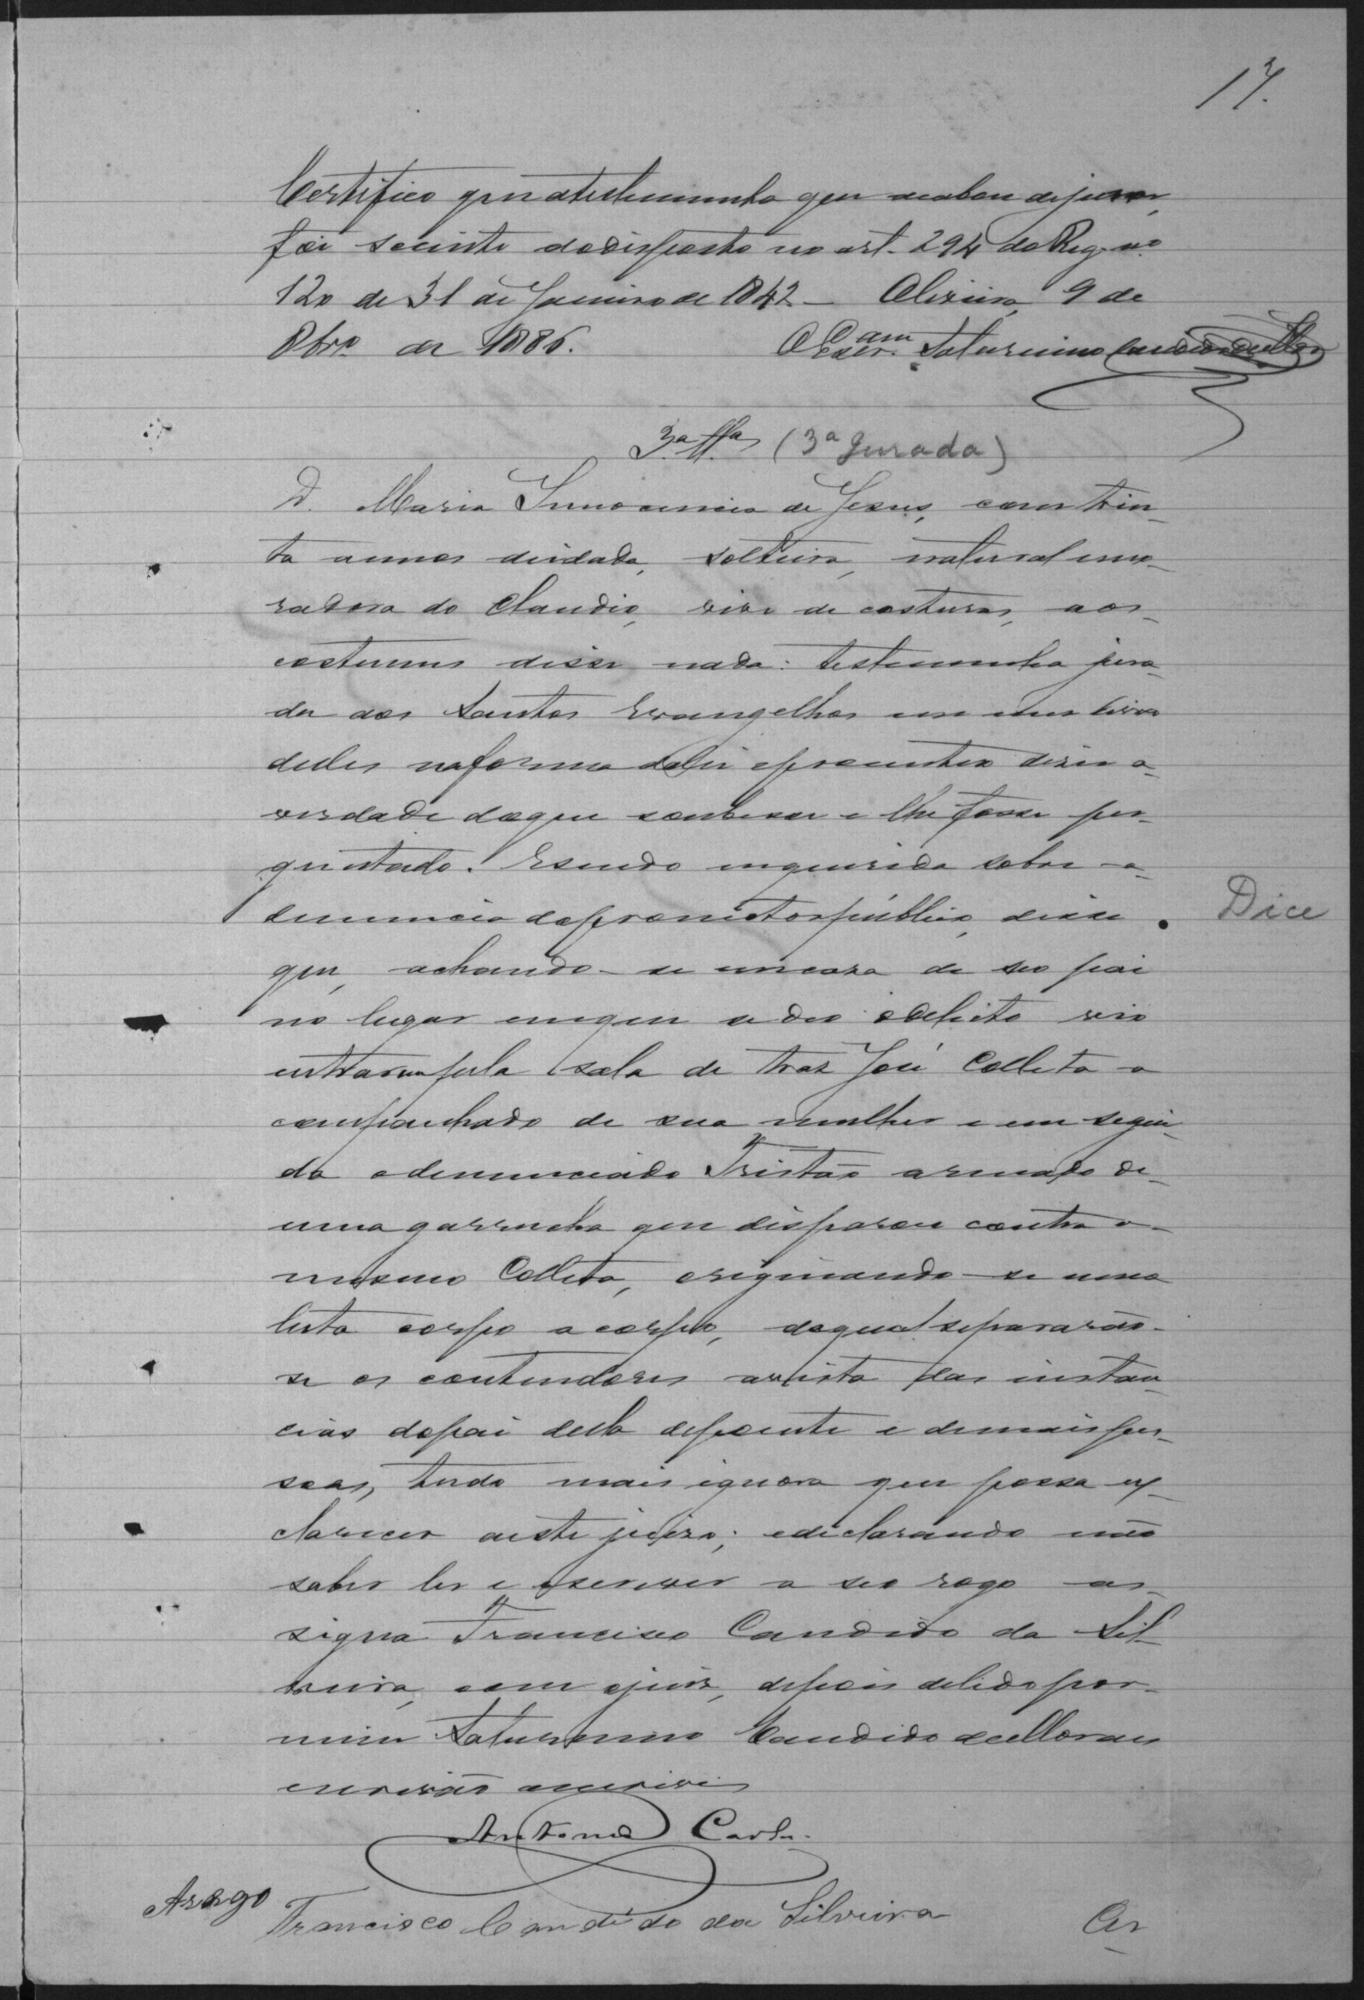 17.
Certifico que a testemunha que acabou de jurar,
foi sciente do disposto no art. 294 do Reg. no
120 de 31 de Janeiro de 1842 — Oliveira, 9 de
8bro de 1886.
O Escram Saturnino Candido de
3.a Ta (3a Jurada)
D. Maria Innocencia de Jesus, com trin-
ta annos deidade, solteira, natural emo-
radora do Claudio, vive de costuras, aos
costumes disse nada: testemunha jura-
da aos Santos Evangelhos em um livro
delles na forma da lei eprometteo dizer a
verdade doque soubesse e lhe fosse per-
guntado. Esendo inquirida sobre a
denuncia dopromotor público, disse
Dice
que, achando-se emcasa de seo pai
no lugar emque sedeo odelicto vio
entrarem pela sala de traz José Colleto a
companhado de sua mulher e em segui-
da odenunciado Tristão armado de
uma garrucha que disparou contra o
mesmo Colleto, originando-se uma
luta corpo a corpo, daqual separarão-
se os contendores avista das instan-
cias dopai della depoente e demais pes-
soas, tudo mais ignora que possa es-
clarecer aeste juizo; edeclarando não
saber ler e escrever a seo rogo as-
signa Francisco Candido da Sil-
veira, com ojuiz, depois delido por
mim Saturnino Candido de Moraes
escrivão escrevi
Antonio Carlos
Arogo
Francisco Candido da Silveira
Cer